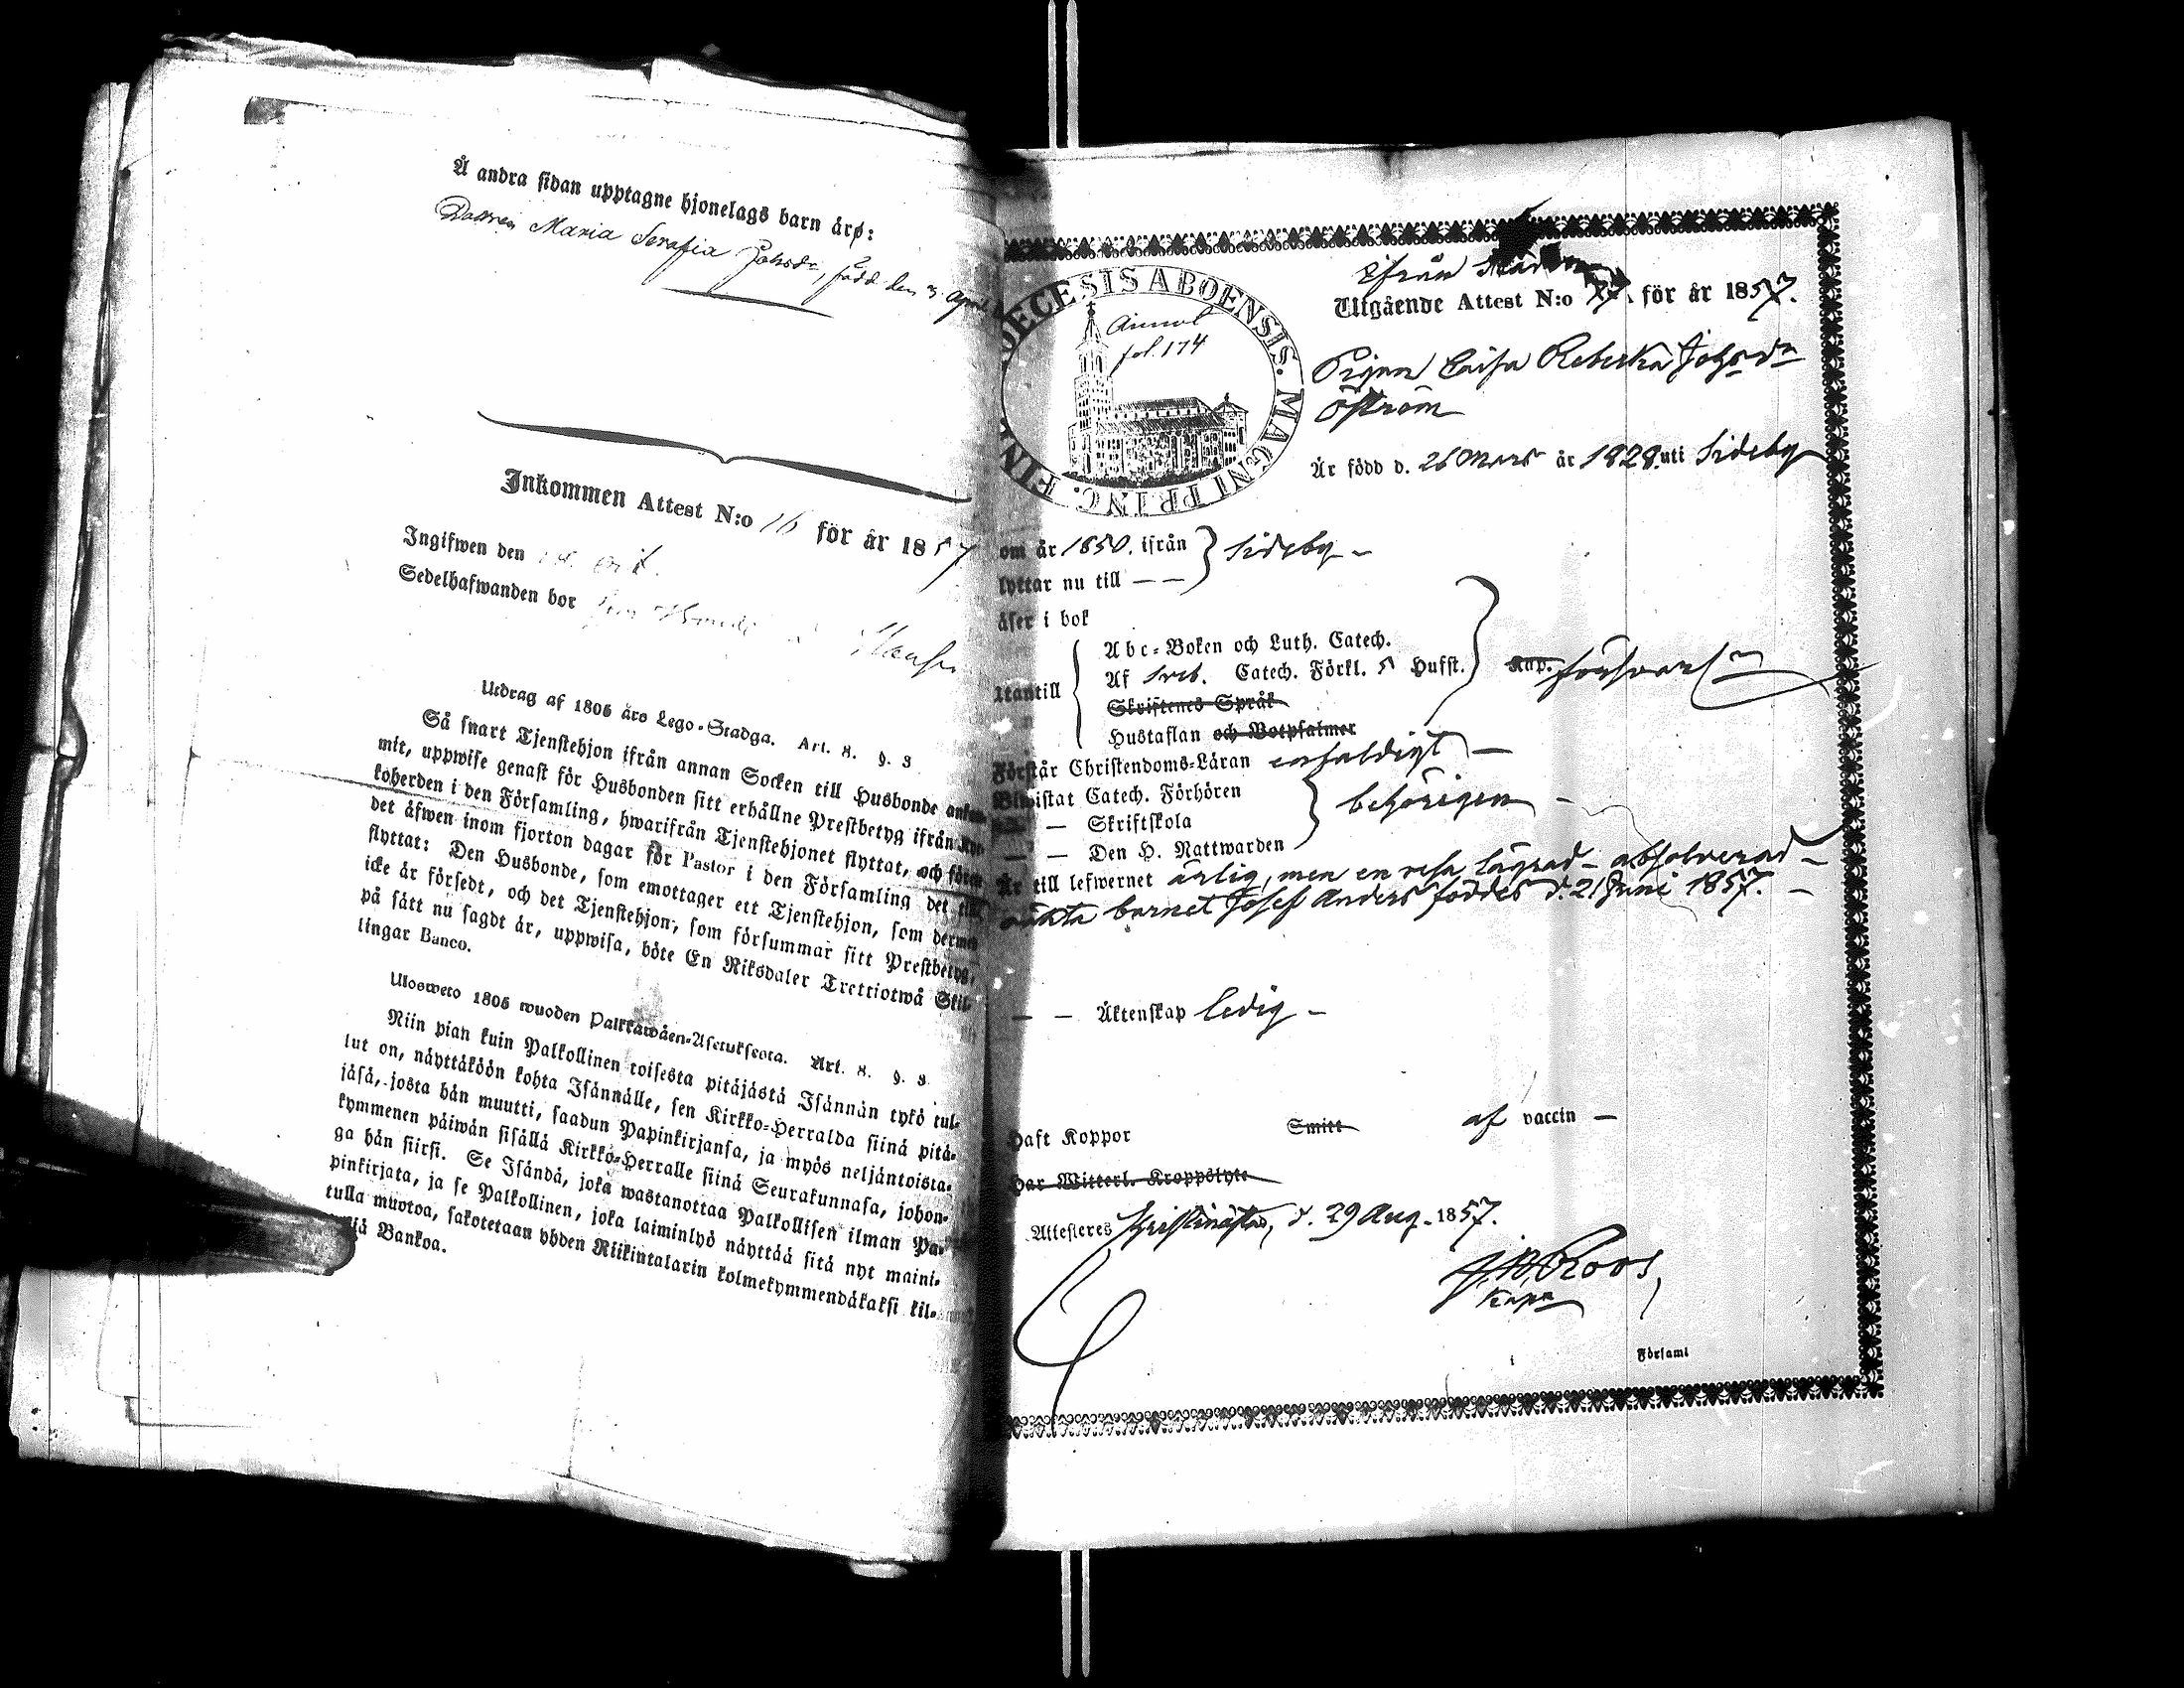 Å andra sidan upptagne hjonelags barn äro:
Dottren Maria Serafia Johsdr, född den 3 April
Inkommen Attest N:o 16 för år 1857
Ingifwen den
Sedelhafwanden bor
Utdrag af 1805 års Lego-Stadga. Art. 8. §. 3
Så snart Tjenstehjon ifrån annan Socken till Husbonde ankom-
mit, uppwise genast för Husbonden sitt erhållne Prestbetyg ifrån Kyr-
koherden i den Församling, hwarifrån Tjenstehjonet flyttat, och förete
det äfwen inom fjorton dagar för Pastor i den Församling det till
flyttat: Den Husbonde, som emottager ett Tjenstehjon, som dermed
icke är försedt, och det Tjenstehjon, som försummar sitt Prestbetyg,
på sätt nu sagdt är, uppwisa, böte En Riksdaler Trettiotwå Skil-
lingar Banco.
Ulosweto 1805 wuoden Palkkawäen-Asetuksesta. Art. 8. §. 3
Niin pian kuin Palkollinen toisesta pitäjästä Isännän tykö tul-
lut on, näyttäköön kohta Isännälle, sen Kirkko-Herralda siinä pitä-
jäsä, josta hän muutti, saadun Papinkirjansa, ja myös neljäntoista-
kymmenen päiwän sisällä Kirkko-Herralle siinä Seurakunnasa, johon-
ga hän siirsi. Se Isändä, joka wastanottaa Palkollisen ilman Pa-
pinkirjata, ja se Palkollinen, joka laiminlyö näyttää sitä nyt maini-
tulla muotoa, sakotetaan yhden Riikintalarin kolmekymmendäkaksi kil-
Bankoa.
DIOECESIS ABOENSIS. MAGNI PRINC. FINL
Annot
fol. 174
ifrån
Utgående Attest N:o för år 1857.
Pigan Caisa Rebecka Johsdr
Öström
Är född d. 26 Mars år 1828 uti Sideby
om år 1850. ifrån Sideby
lyttar nu till — —
äser i bok
Abc-Boken och Luth. Catech.
Af Sveb. Catech. Förkl. 5 Hufst.
Utantill
Skriftenes Språk
Hustaflan och Botpsalmer
Förstår Christendoms-Läran enfaldigt —
Bewistat Catech. Förhören
— Skriftskola behörigen —
— — Den H. Nattwarden
Är till lefwernet ärlig, men en resa lägrad - absolverad -
oäkta barnet Josef Anders föddes d. 21 Juni 1857. —
— — Äktenskap ledig —
Haft Koppor Smitt af vaccin —
Har Witterl. Kroppslyte
Attesteres Kristinestad, d. 29 Aug. 1857.
Roos,
Kapn
Församl